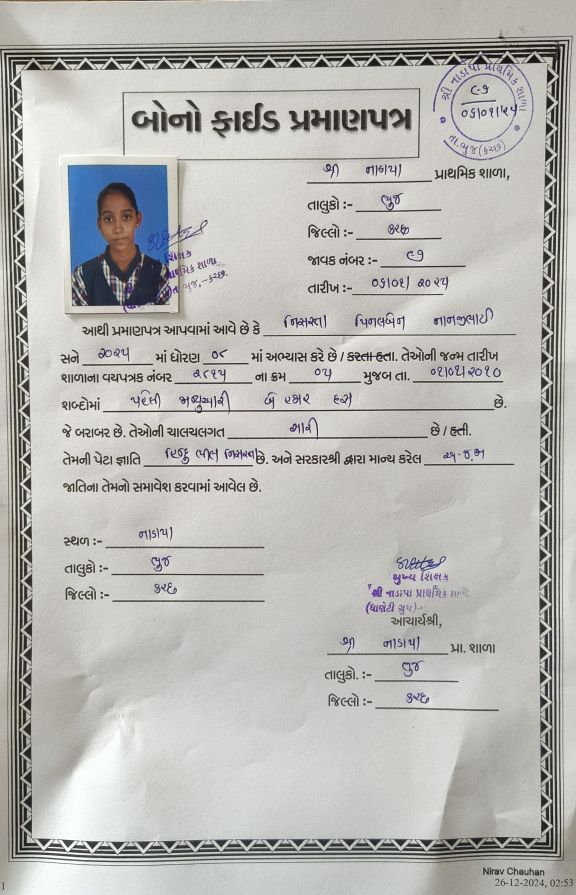 શ્રી નાડાપા પ્રાથમિક શાળા
૯૭
૦૬/૦૧/૨૫
તા.ભુજ (કચ્છ)
બોનો ફાઈડ પ્રમાણપત્ર
શ્રી નાડાપા પ્રાથમિક શાળા,
તાલુકો :- ભુજ
જિલ્લો :- કચ્છ
જાવક નંબર :- ૯૭
તારીખ :- ૦૬/૦૧/૨૦૨૫
શિક્ષક
પ્રાથમિક શાળા
ભુજ,-કચ્છ.
આથી પ્રમાણપત્ર આપવામાં આવે છે કે નિસરતા પિનલબેન નાનજીભાઈ
સને ૨૦૨૫ માં ધોરણ ૦૮ માં અભ્યાસ કરે છે / કરતા હતા. તેઓની જન્મ તારીખ
શાળાના વયપત્રક નંબર ૨૮૧૫ ના ક્રમ ૦૫ મુજબ તા. ૦૧/૦૧/૨૦૧૦
શબ્દોમાં પહેલી જાન્યુઆરી બે હજાર દસ છે.
જે બરાબર છે. તેઓની ચાલચલગત સારી છે / હતી.
તેમની પેટા જ્ઞાતિ હિન્દુ ભીલ નિસરતા છે. અને સરકારશ્રી દ્વારા માન્ય કરેલ અ.જ.જા
જાતિના તેમનો સમાવેશ કરવામાં આવેલ છે.
સ્થળ :- નાડાપા
તાલુકો :- ભુજ
જિલ્લો :- કચ્છ
મુખ્ય શિક્ષક
શ્રી નાડાપા પ્રાથમિક શાળા
(ધાણેટી ગ્રુપ)
આચાર્યશ્રી,
શ્રી નાડાપા પ્રા. શાળા
તાલુકો. :- ભુજ
જિલ્લો :- કચ્છ
Nirav Chauhan
26-12-2024, 02:53